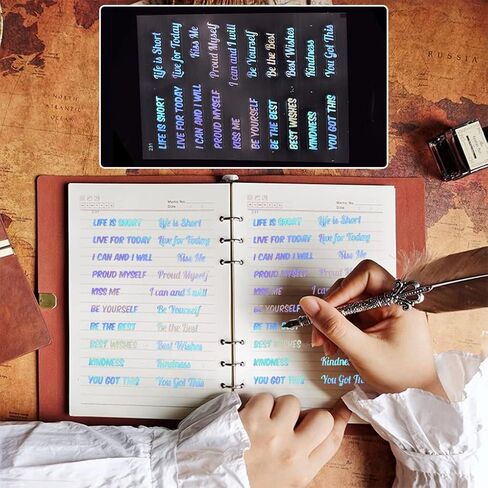 231
LIFE IS SHORT Life is Short
LIVE FOR TODAY Live for Today
I CAN AND I WILL Kiss Me
PROUD MYSELF Proud Myself
KISS ME I can and I will
BE YOURSELF Be Yourself
BE THE BEST Be the Best
BEST WISHES Best Wishes
KINDNESS Kindness
YOU GOT THIS You Got This
RUSSIA
Memo No.
Date
231
LIFE IS SHORT Life is Short
LIVE FOR TODAY Live for Today
I CAN AND I WILL Kiss Me
PROUD MYSELF Proud Myself
KISS ME I can and I will
BE YOURSELF Be Yourself
BE THE BEST Be the Best
BEST WISHES Best Wishes
KINDNESS Kindness
YOU GOT THIS You Got This
Memo No.
Date
LIFE IS SHORT Life is Short
LIVE FOR TODAY Live for Today
I CAN AND I WILL Kiss Me
PROUD MYSELF Proud Myself
KISS ME
BE YOURSELF
BE THE
BEST WISHES
KINDNESS Kindness
YOU GOT THIS You Got This